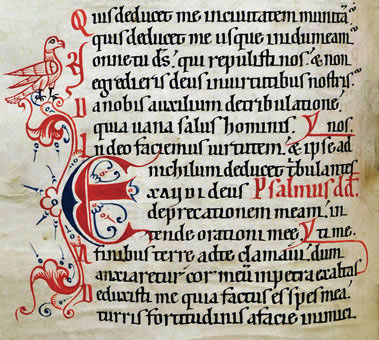 Quis deducet me inciuitatem munitā.
quis deducet me usque inidumeam
Nonne tu ds̄. qui repulisti nos. & non
egredieris deus inuirtutibus nostris
Da nobis auxilium detribulatione.
quia uana salus hominis. nos.
In deo faciemus uirtutem. & ipse ad
nichilum deducet t̄bulantes
Exaudi deus Psalmus dd̄.
deprecationem meam. in
tende orationi mee. ti me.
A finibus terre adte clamaui. dum
anxiaretur cor meū inpetra exaltas
Deduxisti me quia factus es spes mea.
turris fortitudinis afacie inimici